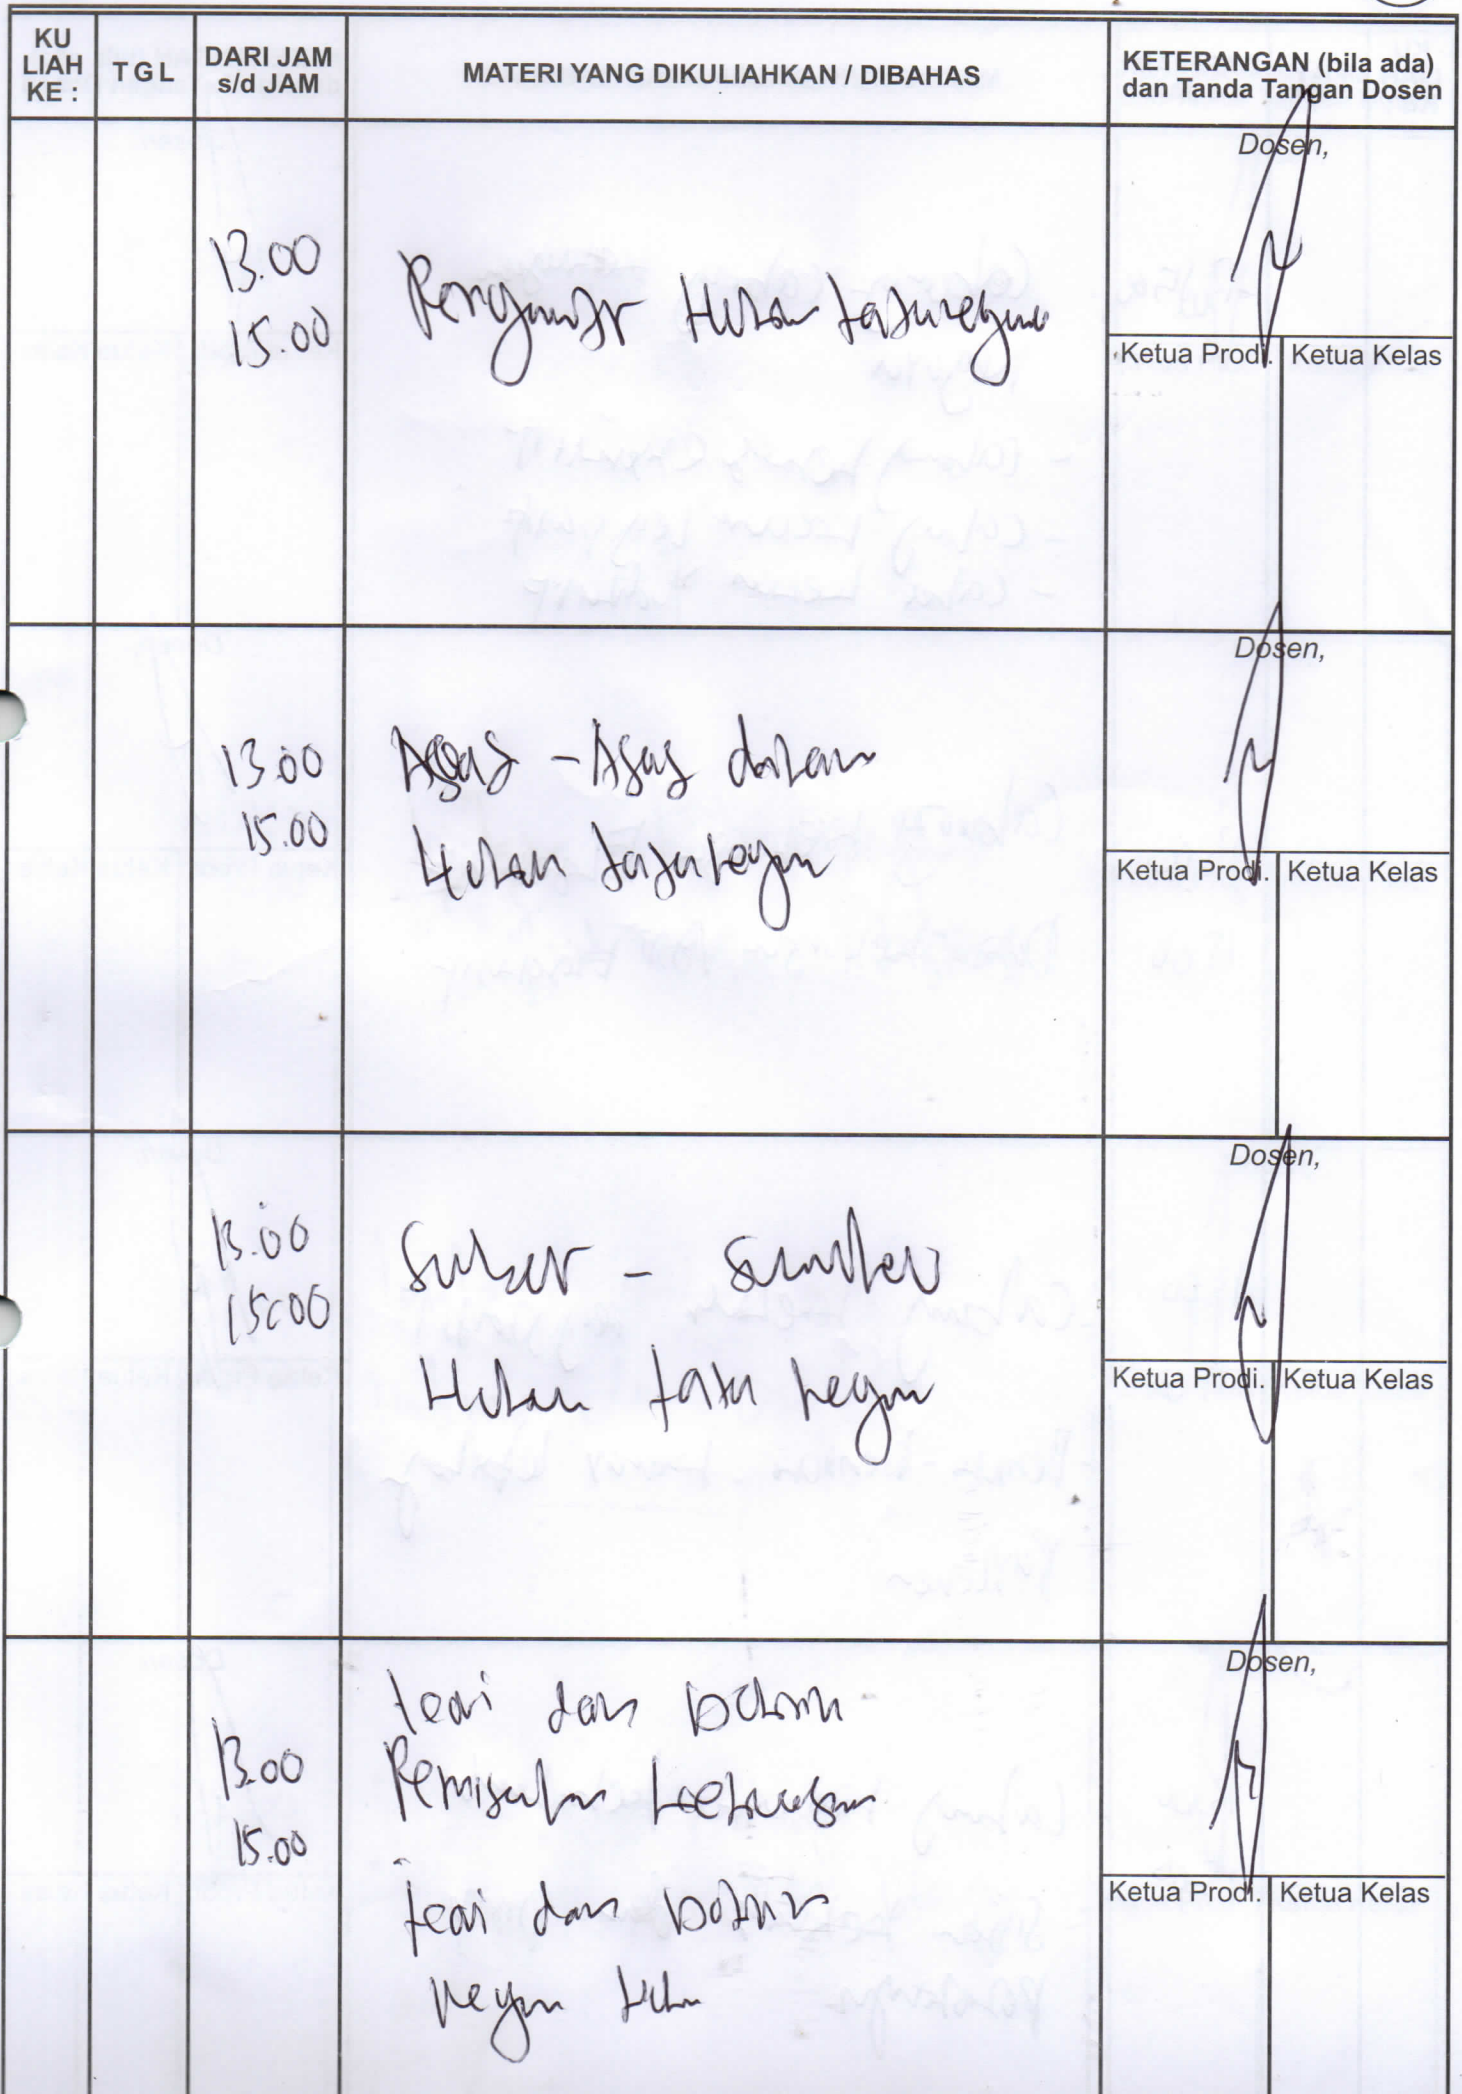 KU LIAH KE :
TGL
DARI JAM s/d JAM
MATERI YANG DIKULIAHKAN / DIBAHAS
KETERANGAN (bila ada) dan Tanda Tangan Dosen
13.00
15.00
Pengantar Hukum tata negara
Dosen,
Ketua Prodi. Ketua Kelas
13.00
15.00
Asas - Asas dalam
Hukum tata negara
Dosen,
Ketua Prodi. Ketua Kelas
13.00
15.00
Sumber - Sumber
Hukum tata negara
Dosen,
Ketua Prodi. Ketua Kelas
13.00
15.00
teori dan
Pemisahan kekuasaan
teori dan
negara hukum
Dosen,
Ketua Prodi. Ketua Kelas